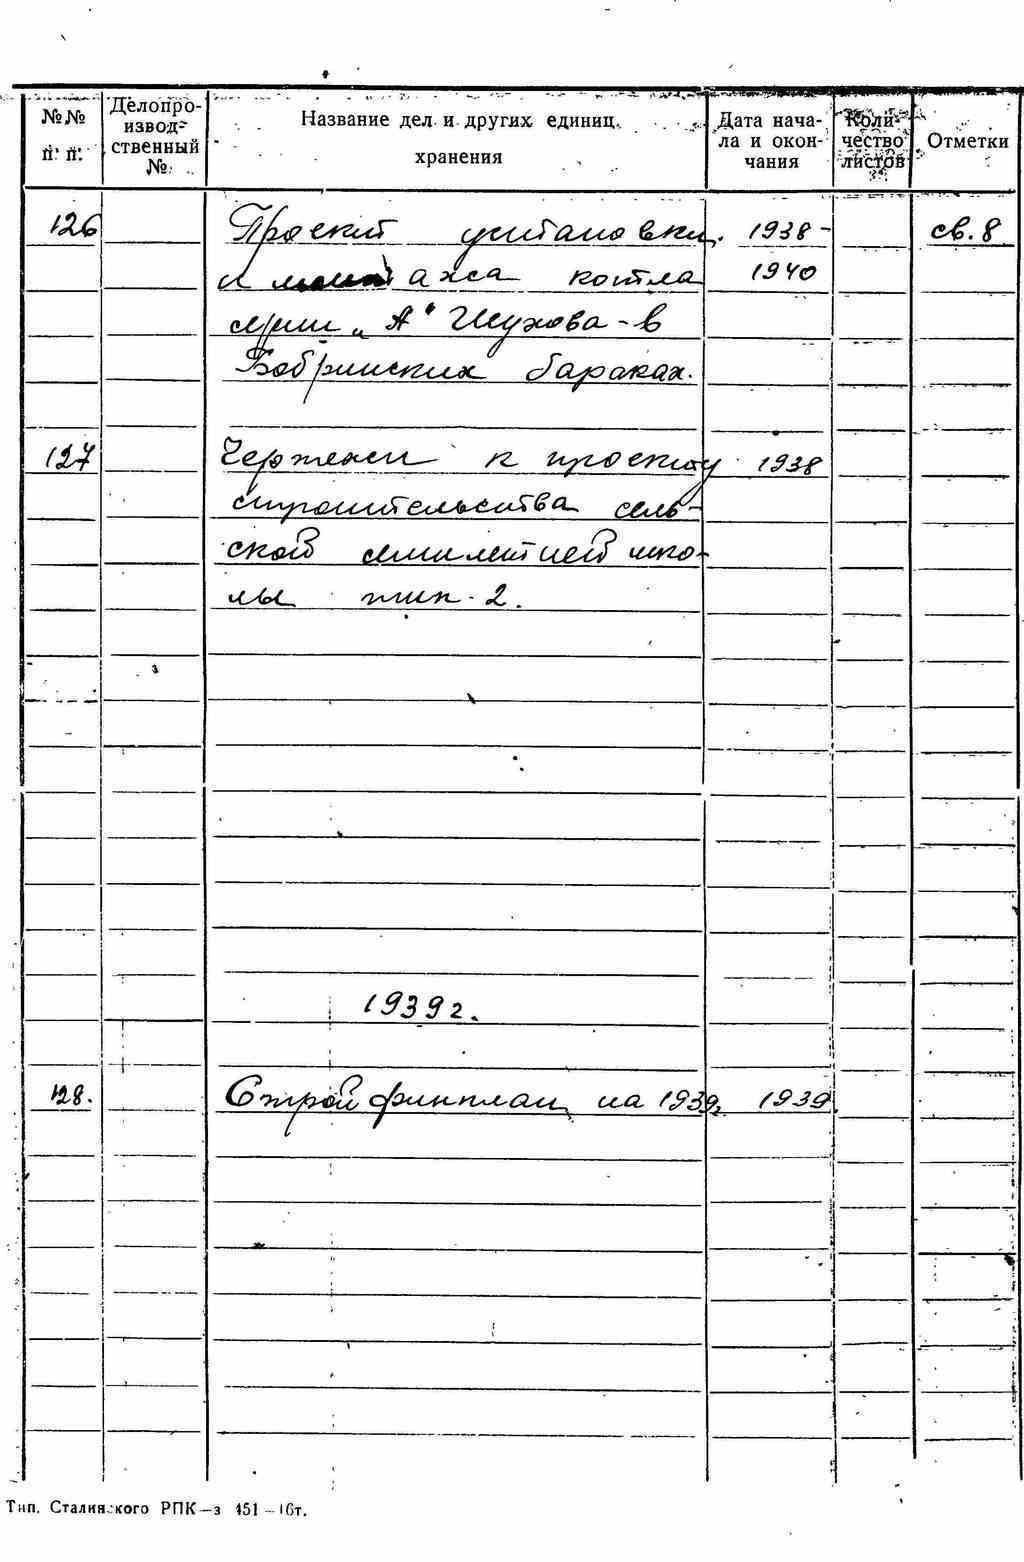 №№ п. п. Делопро-изводственный № Название дел и других единиц хранения Дата начала и окончания Количество листов Отметки
126 Проект установки 1938- св. 8
и монтажа котла 1940
серии „А" Шухова - в
Бобринских бараках.
127 Чертежи к проекту 1938
строительства сель-
ской семилетней шко-
лы тип-2.
1939 г.
128. Стройфинплан на 1939г. 1939
Тип. Сталинского РПК—з 451—16т.